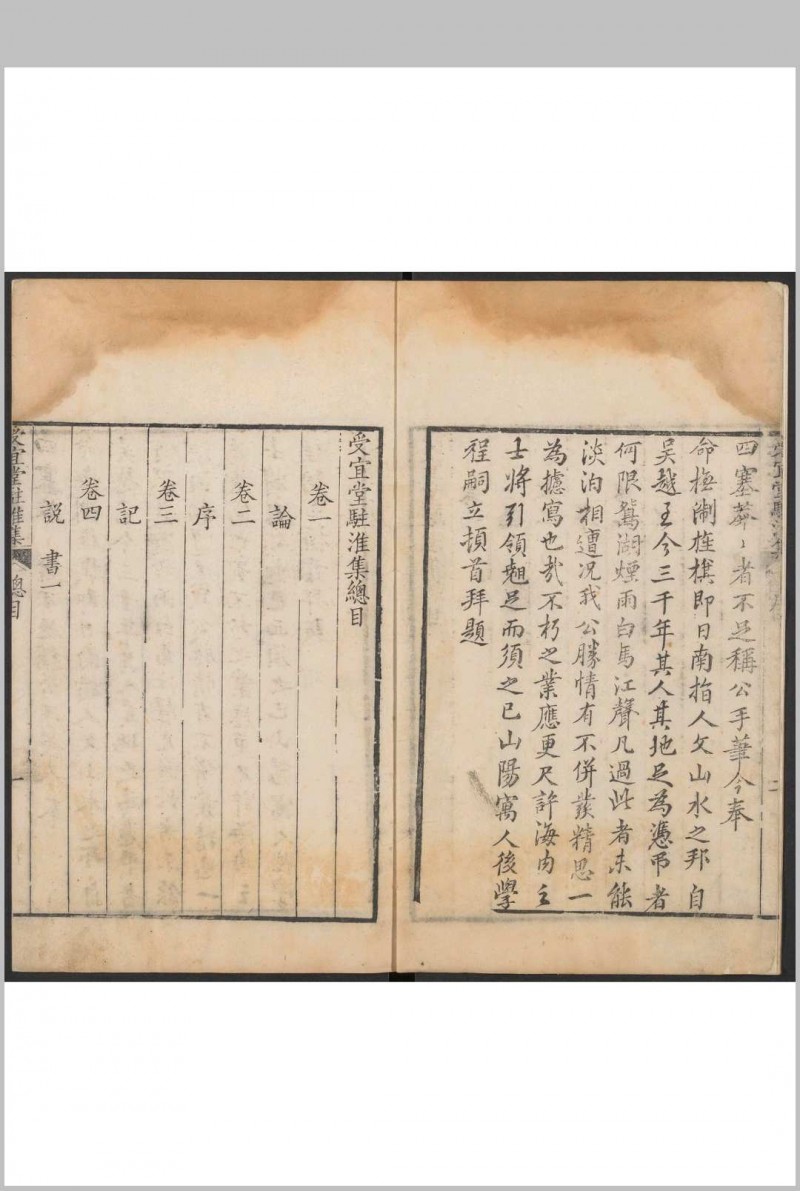 四塞莽〻者不足稱公手筆今奉
命撫淛旌棋即日南指人文山水之邦自
吳越王今三千年其人其地足為憑弔者
何限鴛湖煙雨白馬江聲凡過此者未能
淡泊相遭况我公勝情有不併發精思一
為攄寫也哉不朽之業應更尺許海內之
士將引領翹足而須之已山陽寓人後學
程嗣立頓首拜題
受宜堂駐淮集總目
卷一
論
卷二
序
卷三
記
卷四
説 書一
受宜堂駐淮集 總目 一